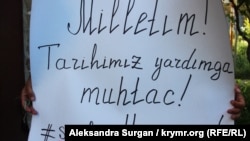 Milletim!
Tarihimiz yardımğa
muhtac!
Aleksandra Surgan / krymr.org (RFE/RL)